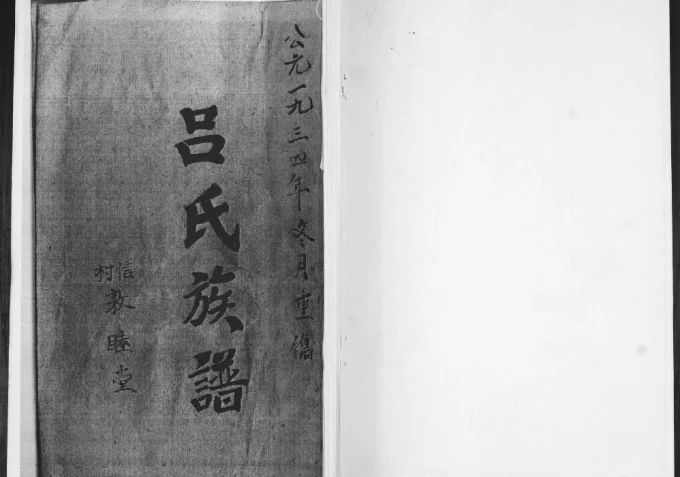 公元一九三四年冬月重镌
吕氏族譜
信村
敦睦堂